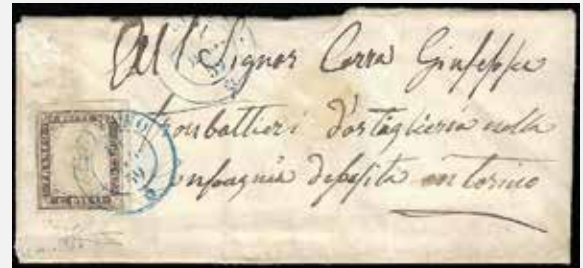 All'Signor Corra Giuseppe
Trombattieri d'artiglieria nella
Compagnia deposita in torino